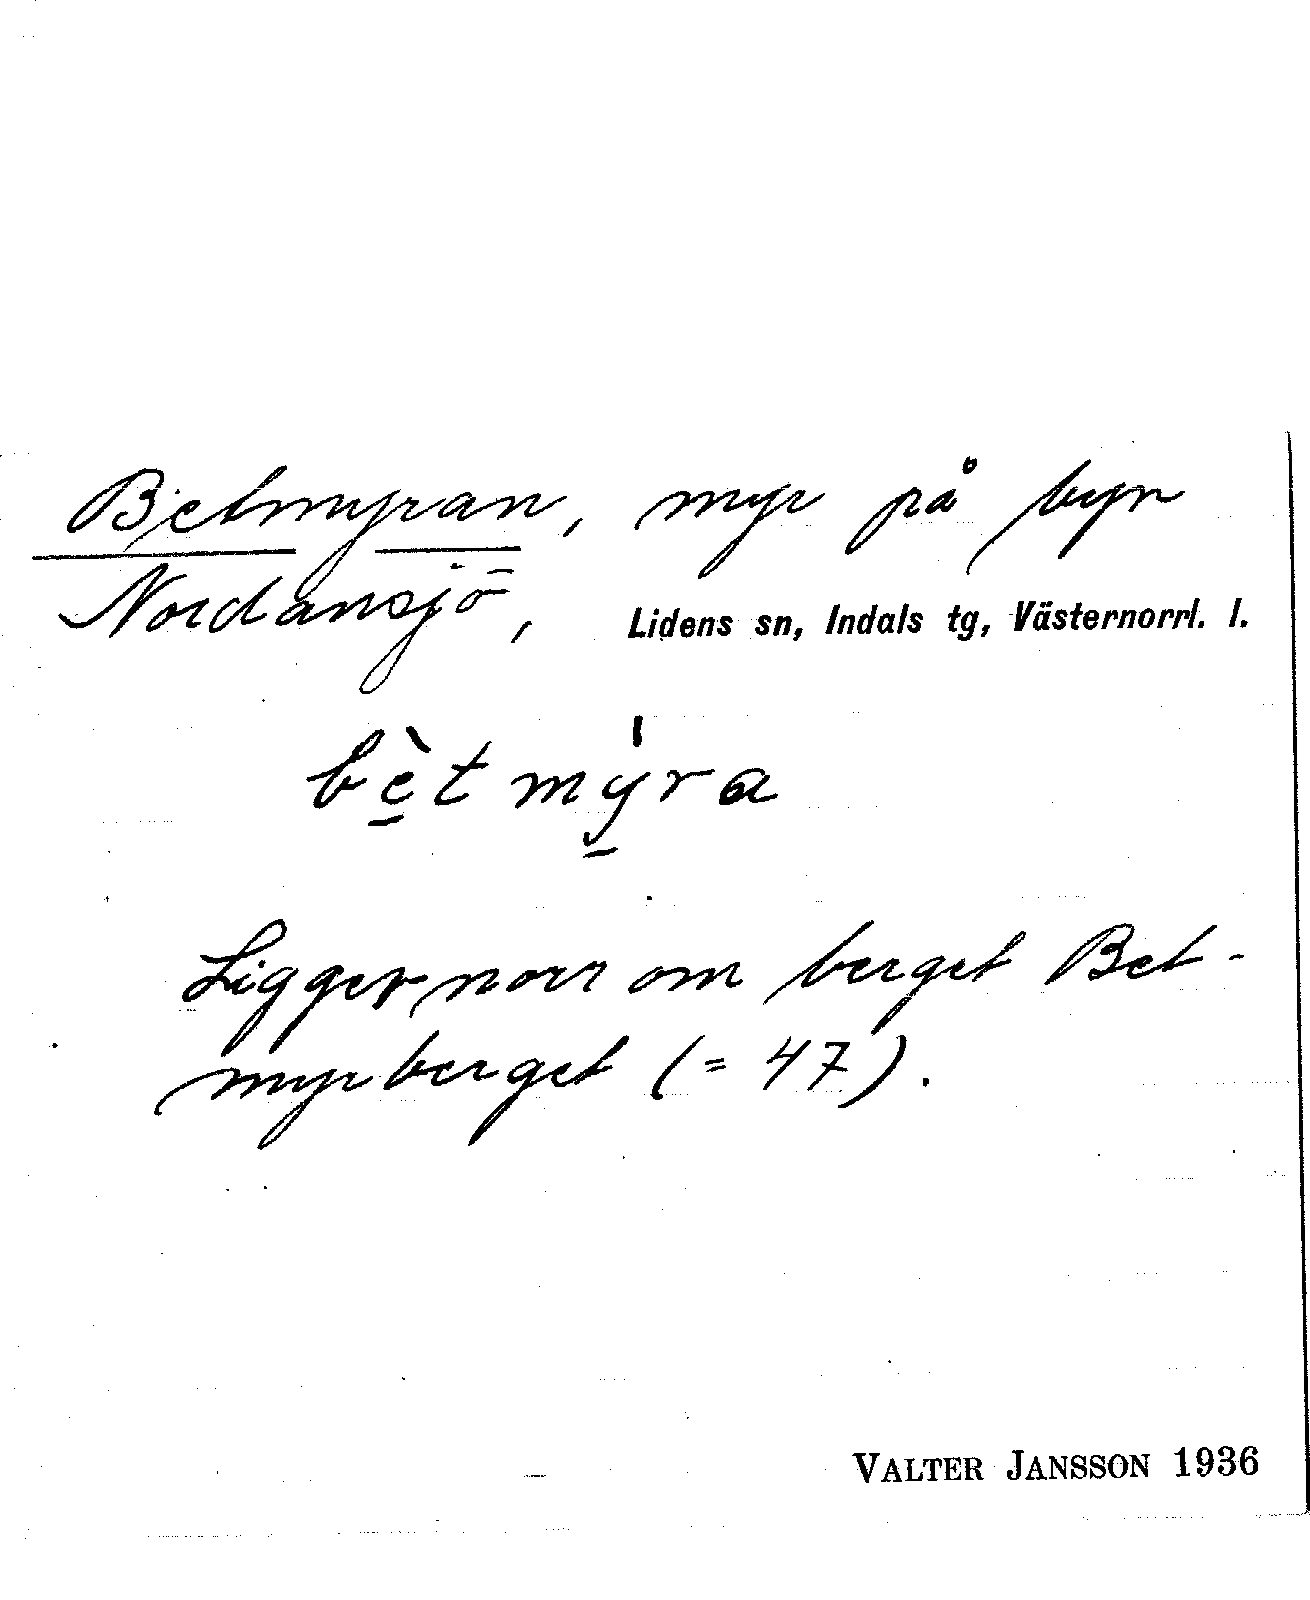 Betmyran, myr på byn
Nordansjö, Lidens sn, Indals tg, Västernorrl. l.
bè̱t mý̱ra
Ligger norr om berget Bet-
myrberget (= 47).
VALTER JANSSON 1936